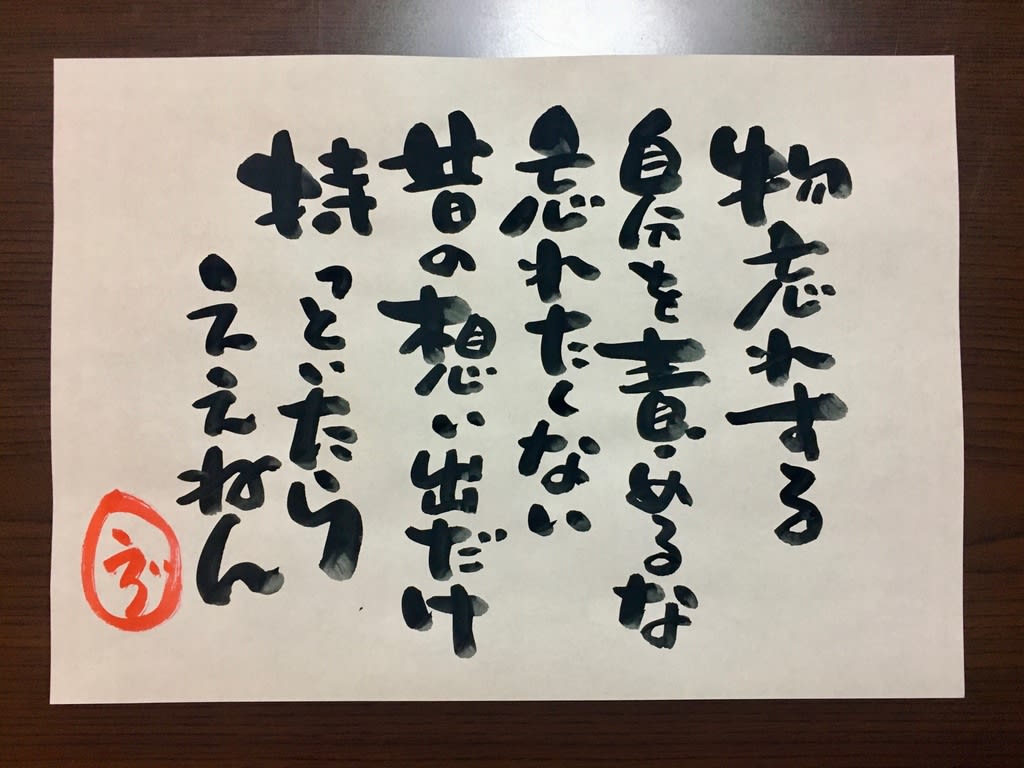 物忘れする
自分を責めるな
忘れたくない
昔の想い出だけ
持っといたら
ええねん